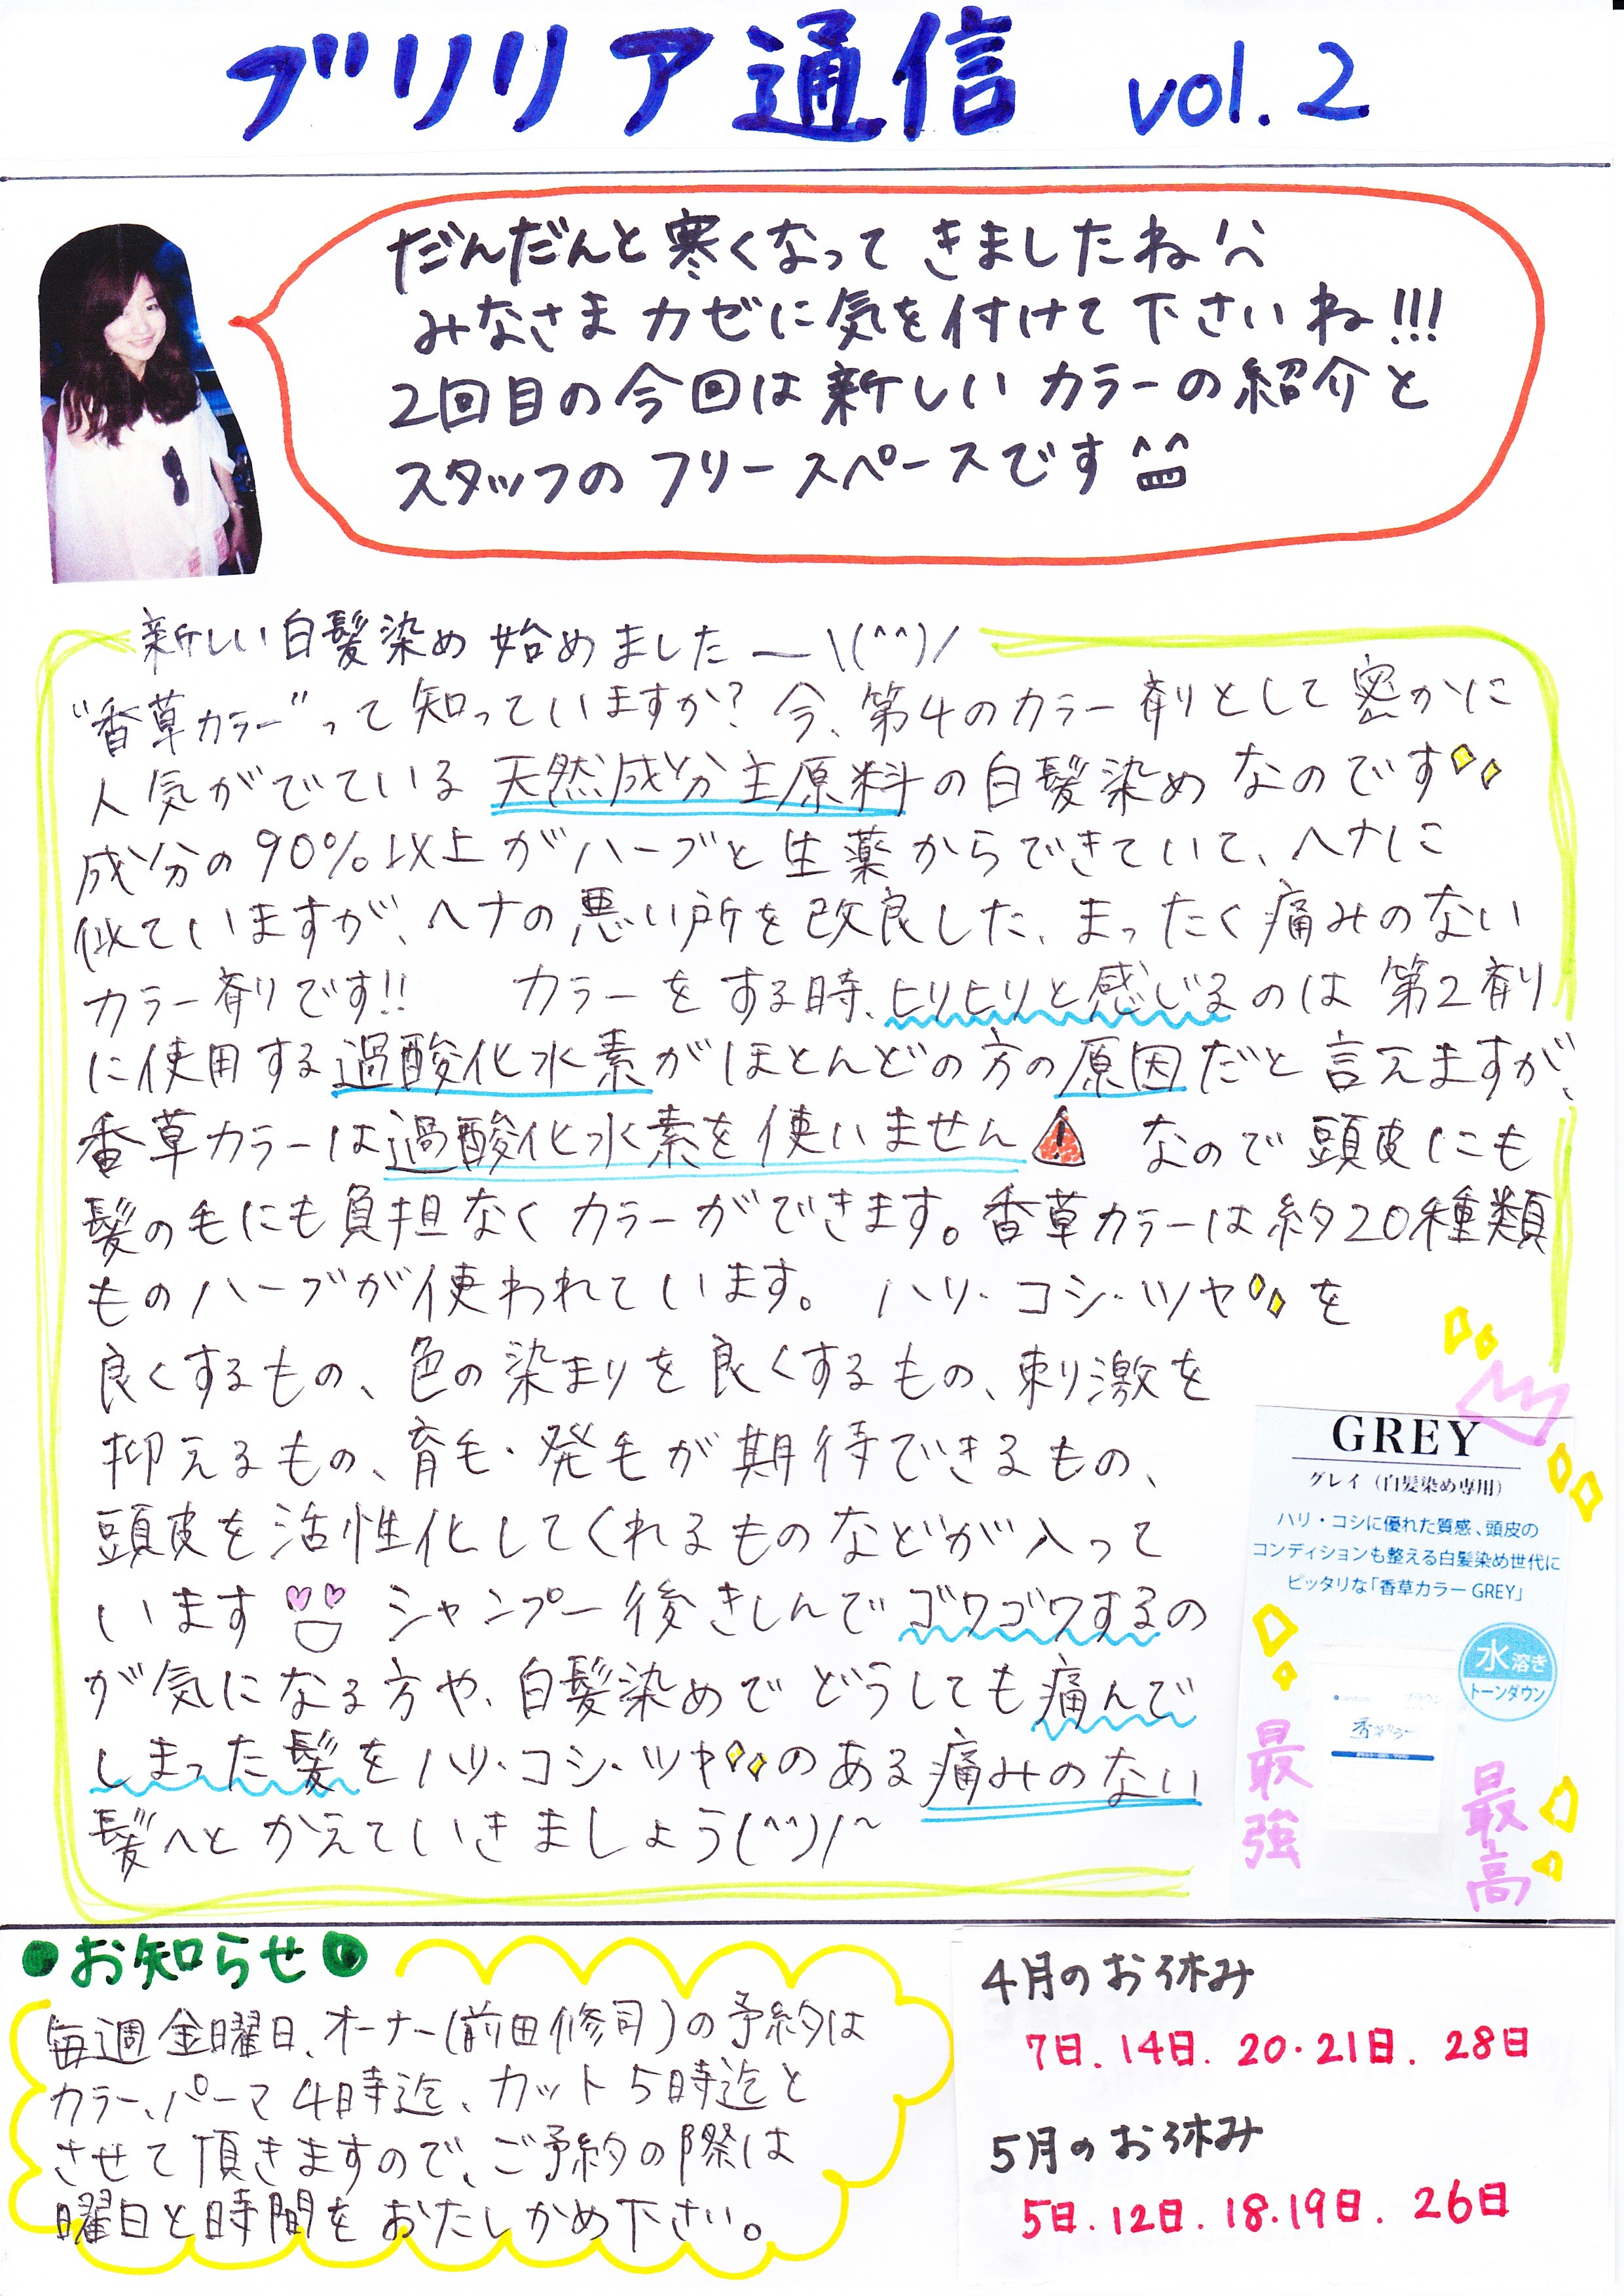 ブリリア通信 vol.2
だんだんと寒くなってきましたね^^
みなさまカゼに気を付けて下さいね!!!
2回目の今回は新しいカラーの紹介と
スタッフのフリースペースです
新しい白髪染め始めました ー \(^^)/
"香草カラー"って知っていますか? 今、第4のカラー剤として密かに
人気がでている天然成分主原料の白髪染めなのです
成分の90%以上がハーブと生薬からできていて、ヘナに
似ていますが、ヘナの悪い所を改良した、まったく痛みのない
カラー剤です!! カラーをする時、ヒリヒリと感じるのは第2剤
に使用する過酸化水素がほとんどの方の原因だと言えますが、
香草カラーは過酸化水素を使いません なので頭皮にも
髪の毛にも負担なくカラーができます。香草カラーは約20種類
ものハーブが使われています。 ハリ・コシ・ツヤを
良くするもの、色の染まりを良くするもの、刺激を
抑えるもの、育毛・発毛が期待できるもの、
頭皮を活性化してくれるものなどが入って
います シャンプー後きしんでゴワゴワするの
が気になる方や、白髪染めでどうしても痛んで
しまった髪をハリ・コシ・ツヤのある痛みのない
髪へとかえていきましょう(^^)/~
GREY
グレイ（白髪染め専用）
ハリ・コシに優れた質感、頭皮の
コンディションも整える白髪染め世代に
ピッタリな「香草カラーGREY」
水溶き
トーンダウン
香草カラー
最強
最高
●お知らせ●
毎週金曜日、オーナー(前田修司)の予約は
カラー、パーマ4時迄、カット5時迄と
させて頂きますので、ご予約の際は
曜日と時間をおたしかめ下さい。
4月のお休み
7日. 14日. 20・21日. 28日
5月のお休み
5日. 12日. 18.19日. 26日